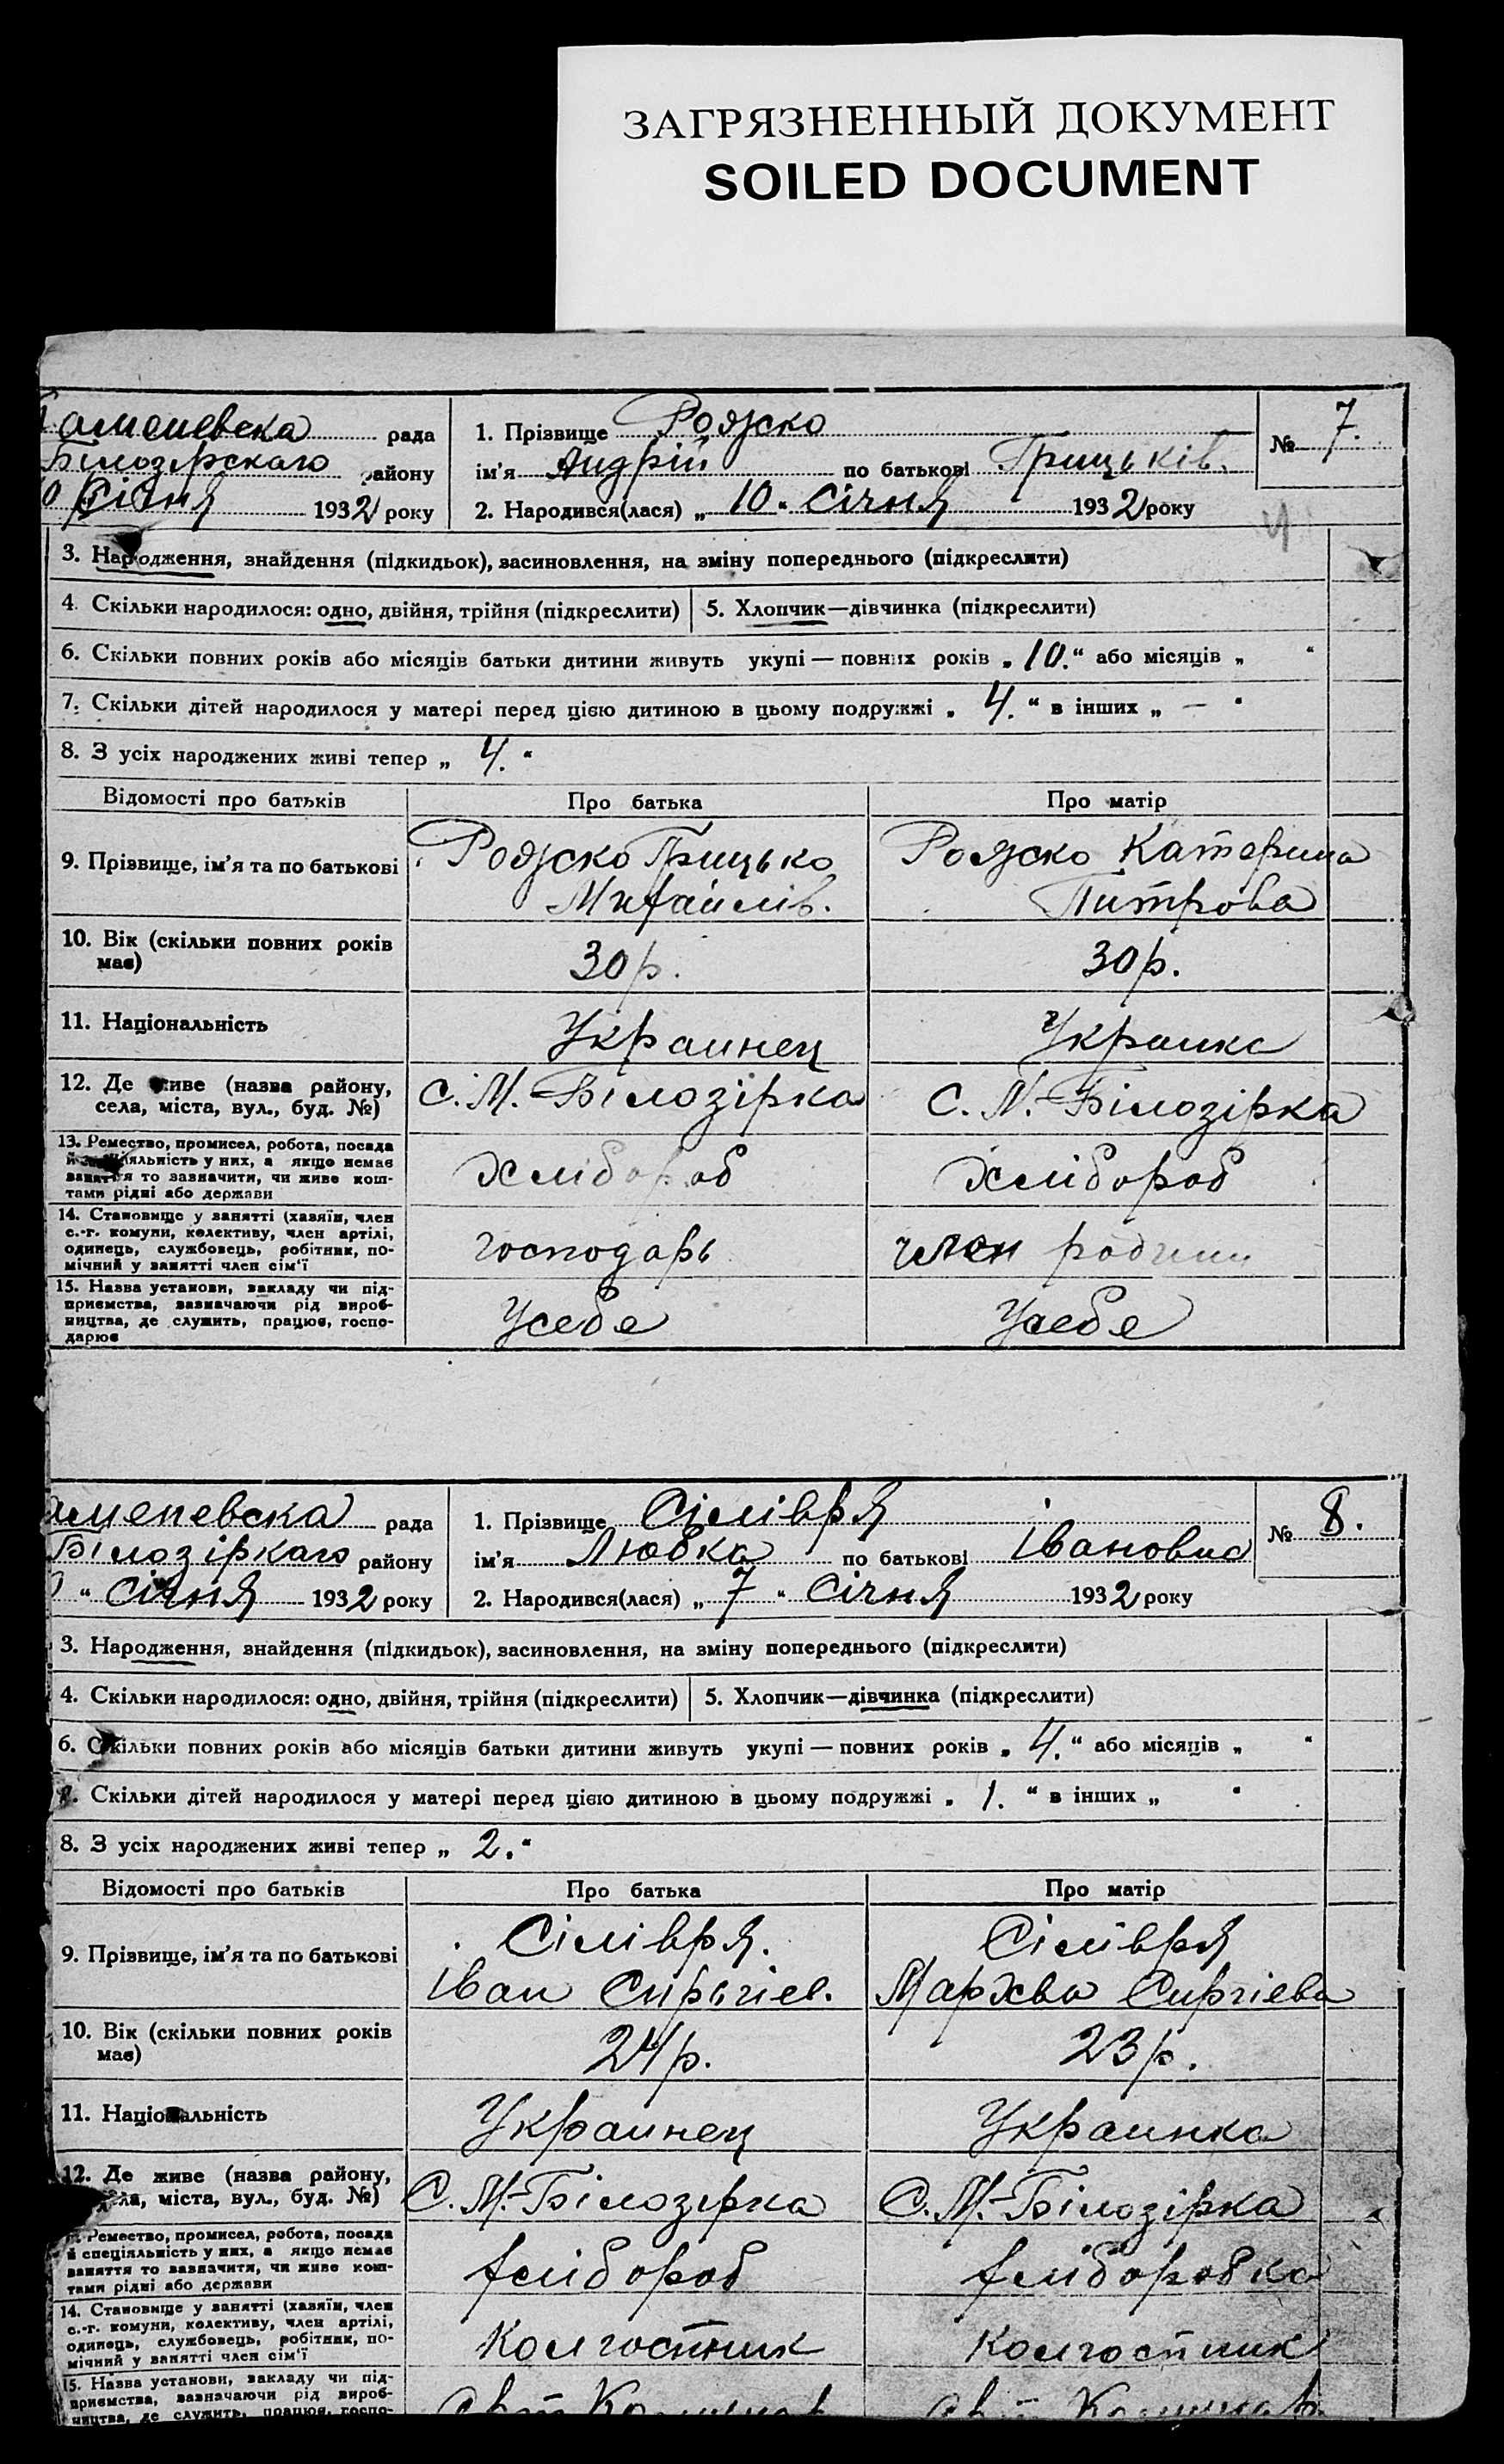 ЗАГРЯЗНЕННЫЙ ДОКУМЕНТ
SOILED DOCUMENT
аменевска рада
Білозірскаго району
Січня 1932 року
1. Прізвище
ім'я Андрій по батькові Грицьків.
2. Народився(лася) „ 10 “ Січня 1932 року
№ 7.
4
3. Народження, знайдення (підкидьок), засиновлення, на зміну попереднього (підкреслити)
4. Скільки народилося: одно, двійня, трійня (підкреслити)
5. Хлопчик—дівчинка (підкреслити)
6. Скільки повних років або місяців батьки дитини живуть укупі — повних років „ 10. “ або місяців „ “
7. Скільки дітей народилося у матері перед цією дитиною в цьому подружжі „ 4. “ в інших „ — “
8. З усіх народжених живі тепер „ 4. “
Відомості про батьків
Про батька
Про матір
9. Прізвище, ім'я та по батькові
Грицько
Михайлів.
Катерина
Питрова
10. Вік (скільки повних років
має)
30 р.
30 р.
11. Національність
Украинец
Украинка
12. Де живе (назва району,
села, міста, вул., буд. №)
С. М. Білозірка
С. М. Білозірка
13. Ремество, промисел, робота, посада
й спеціяльність у них, а якщо немає
заняття то зазначити, чи живе кош-
тами рідні або держави
Хлібороб
Хлібороб
14. Становище у занятті (хазяїн, член
с.-г. комуни, колективу, член артілі,
одинець, службовець, робітник, по-
мічний у занятті член сім'ї
господарь
член родини
15. Назва установи, закладу чи під-
приємства, зазначаючи рід вироб-
ництва, де служить, працює, госпо-
дарює
Усебе
Усебе
аменевска рада
Білозіркаго району
“ Січня 1932 року
1. Прізвище Сілівря
ім'я Любка по батькові Івановна
2. Народився(лася) „ 7 “ Січня 1932 року
№ 8.
3. Народження, знайдення (підкидьок), засиновлення, на зміну попереднього (підкреслити)
4. Скільки народилося: одно, двійня, трійня (підкреслити)
5. Хлопчик—дівчинка (підкреслити)
6. Скільки повних років або місяців батьки дитини живуть укупі — повних років „ 4. “ або місяців „ “
7. Скільки дітей народилося у матері перед цією дитиною в цьому подружжі „ 1. “ в інших „ “
8. З усіх народжених живі тепер „ 2. “
Відомості про батьків
Про батька
Про матір
9. Прізвище, ім'я та по батькові
Сілівря.
Іван Сиргіев.
Сілівря
Мархва Сиргіева
10. Вік (скільки повних років
має)
24 р.
23 р.
11. Національність
Украинец
Украинка
12. Де живе (назва району,
села, міста, вул., буд. №)
С. М-Білозірка
С. М.-Білозірка
Ремество, промисел, робота, посада
й спеціяльність у них, а якщо немає
заняття то зазначити, чи живе кош-
тами рідні або держави
хлібороб
хлiборобка
14. Становище у занятті (хазяїн, член
с.-г. комуни, колективу, член артілі,
одинець, службовець, робітник, по-
мічний у занятті член сім'ї
Колгостник
Колгостник
15. Назва установи, закладу чи під-
приємства, зазначаючи рід вироб-
ництва, де служить, працює, госпо-